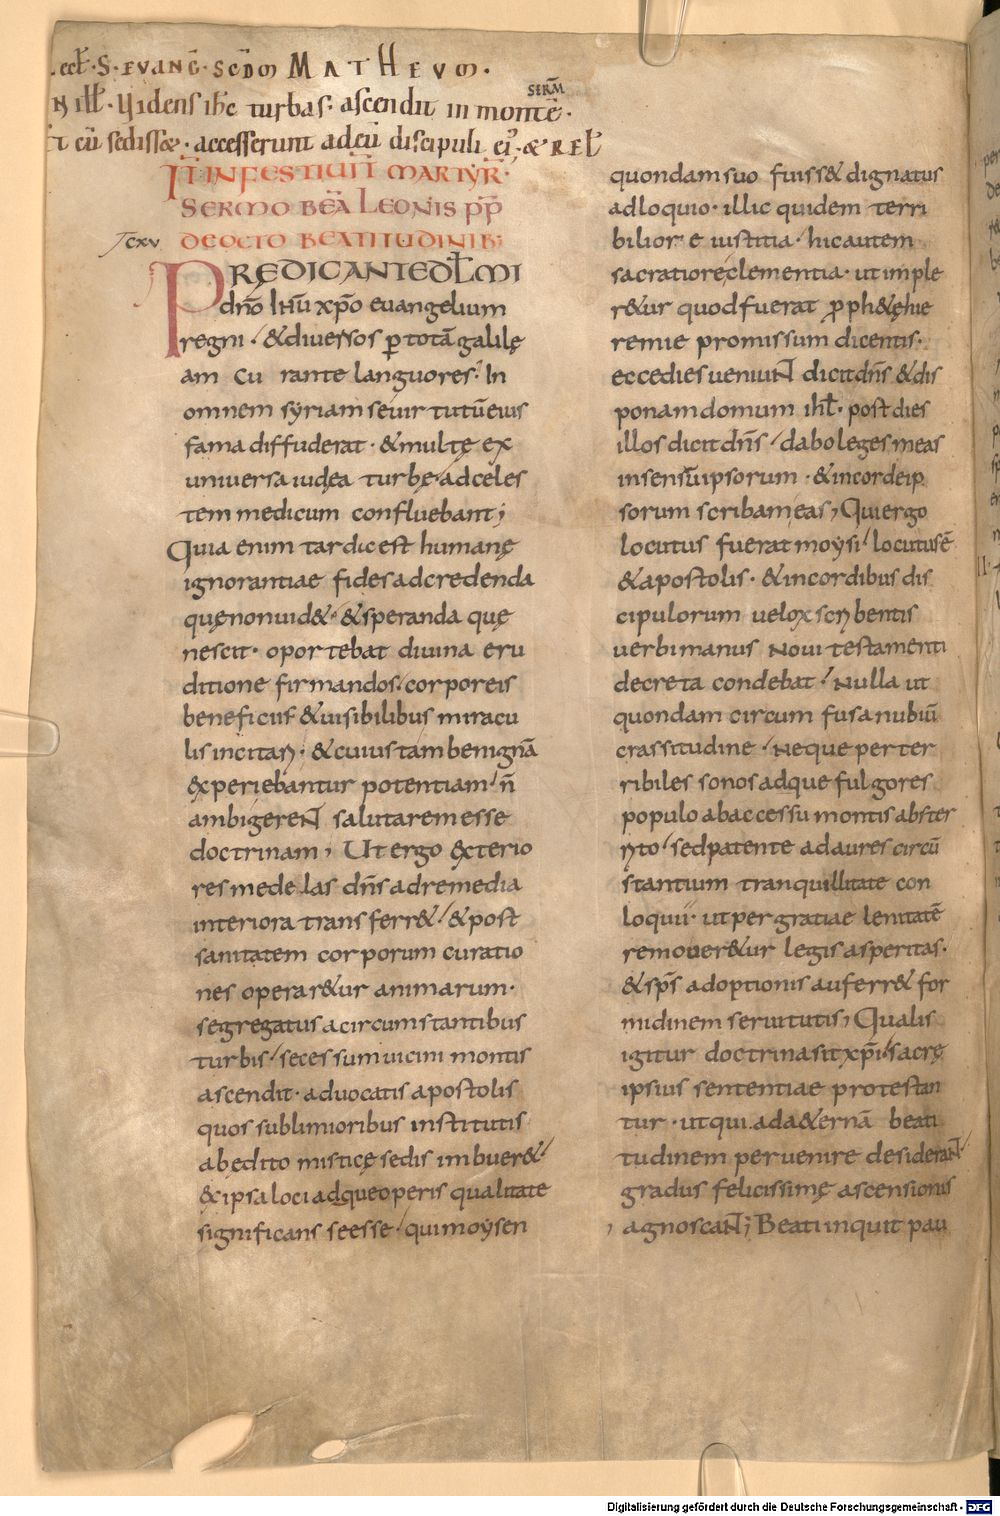 .ecct̄·S·EVANḠ·SCDM MATHEVM·
N ill̄·Videns ih̄c turbas· ascendit in montē· SERM̄
t cū sediss&· accesserunt ad eū discipuli ei; & REL̄
IN INFESTIUIT MARTYR̄·
SERMO BEĀ LEONIS PP̄
cxv DE OCTO BEATITUDINIB;
PREDICANTE DL̄MI
dn̄o ih̄u xp̄o euangelium
regni·/ & diuersos p̱ totā galilę
am cu rante languores·/ In
omnem syriam seuir tutū eius
fama diffuderat· & multę ex
uniuersa iudęa turbę/ ad celes
tem medicum confluebant;
Quia enim tardic est humanę
ignorantiae fides ad credenda
quę non uid&·/ & speranda quę
nescit· oportebat diuina eru
ditione firmandos·/ corporeis
beneficiis & uisibilibus miracu
lis incitari· & cuius tam benignā
experiebantur potentiam·/ n̄
ambigerent salutarem esse
doctrinam; Ut ergo exterio
res mede las dn̄s ad remedia
interiora transferr&·/ & post
sanitatem corporum curatio
nes operar&ur animarum·
segregatus a circumstantibus
turbis·/ secessum uicini montis
ascendit· aduocatis apostolis
quos sublimioribus institutis
ab edito misticę sedis imbuer&·/
Ex ipsa loci adque operis qualitate
significans se esse·/ qui moysen
quondam suo fuiss& dignatus
adloquio· illic quidem terri
bilior e iustitia·/ hic autem
sacratiore clementia· ut imple
r&ur quod fuerat ꝓph&ę hie
remie promissum dicentis·
ecce dies ueniunt dicit dn̄s & dis
ponam domum ihl̄· post dies
illos dicit dn̄s·/ dabo leges meas
in sensu ipsorum· & in corde ip
sorum scribam eas; Qui ergo
locutus fuerat moysi·/ locutus ē
& apostolis· & in cordibus dis
cipulorum uelox scribentis
uerbi manus Noui testamenti
decreta condebat·/ Nulla ut
quondam circum fusa nubiū
crassitudine·/ Neque per ter
ribiles sonos adque fulgores
populo ab accessu montis abster
rito·/ sed patente ad aures circū
stantium tranquillitate con
loquii· ut per gratiae lenitatē
remouer&ur legis asperitas·
& sp̄s adoptionis auferr& for
midinem seruitutis; Qualis
igitur doctrina sit xp̄i·/ sacrę
ipsius sententiae protestan
tur· ut qui ad aeternā beati
tudinem peruenire desiderant·/
gradus felicissimę ascensionis
agnoscant; Beati inquit pau
Digitalisierung gefördert durch die Deutsche Forschungsgemeinschaft - DFG